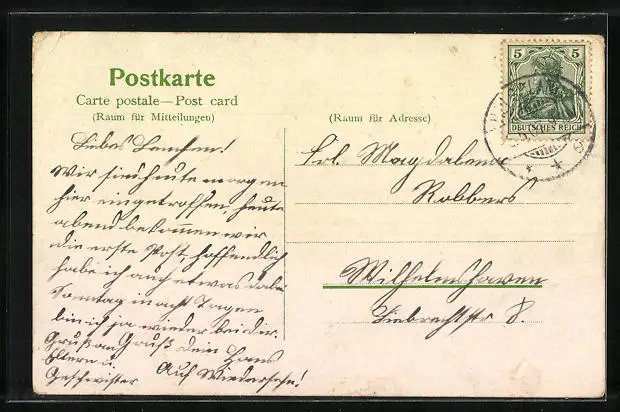 Postkarte
Carte postale—Post card
(Raum für Mitteilungen)
(Raum für Adresse)
5 5
DEUTSCHES REICH
Liebes Lenchen!
Wir sind heute morgen
hier eingetroffen, heute
abend bekommen wir
die erste Post, hoffendlich
habe ich auch etwas dabei
Sonntag in acht Tagen
bin ich ja wieder bei dir.
Gruß an Gruß Dein Hans
Eltern u.
Geschwister Auf Wiedersehn!
Frl. Magdalena
Robbers
Wilhelmshaven
Liebrechtstr 8.